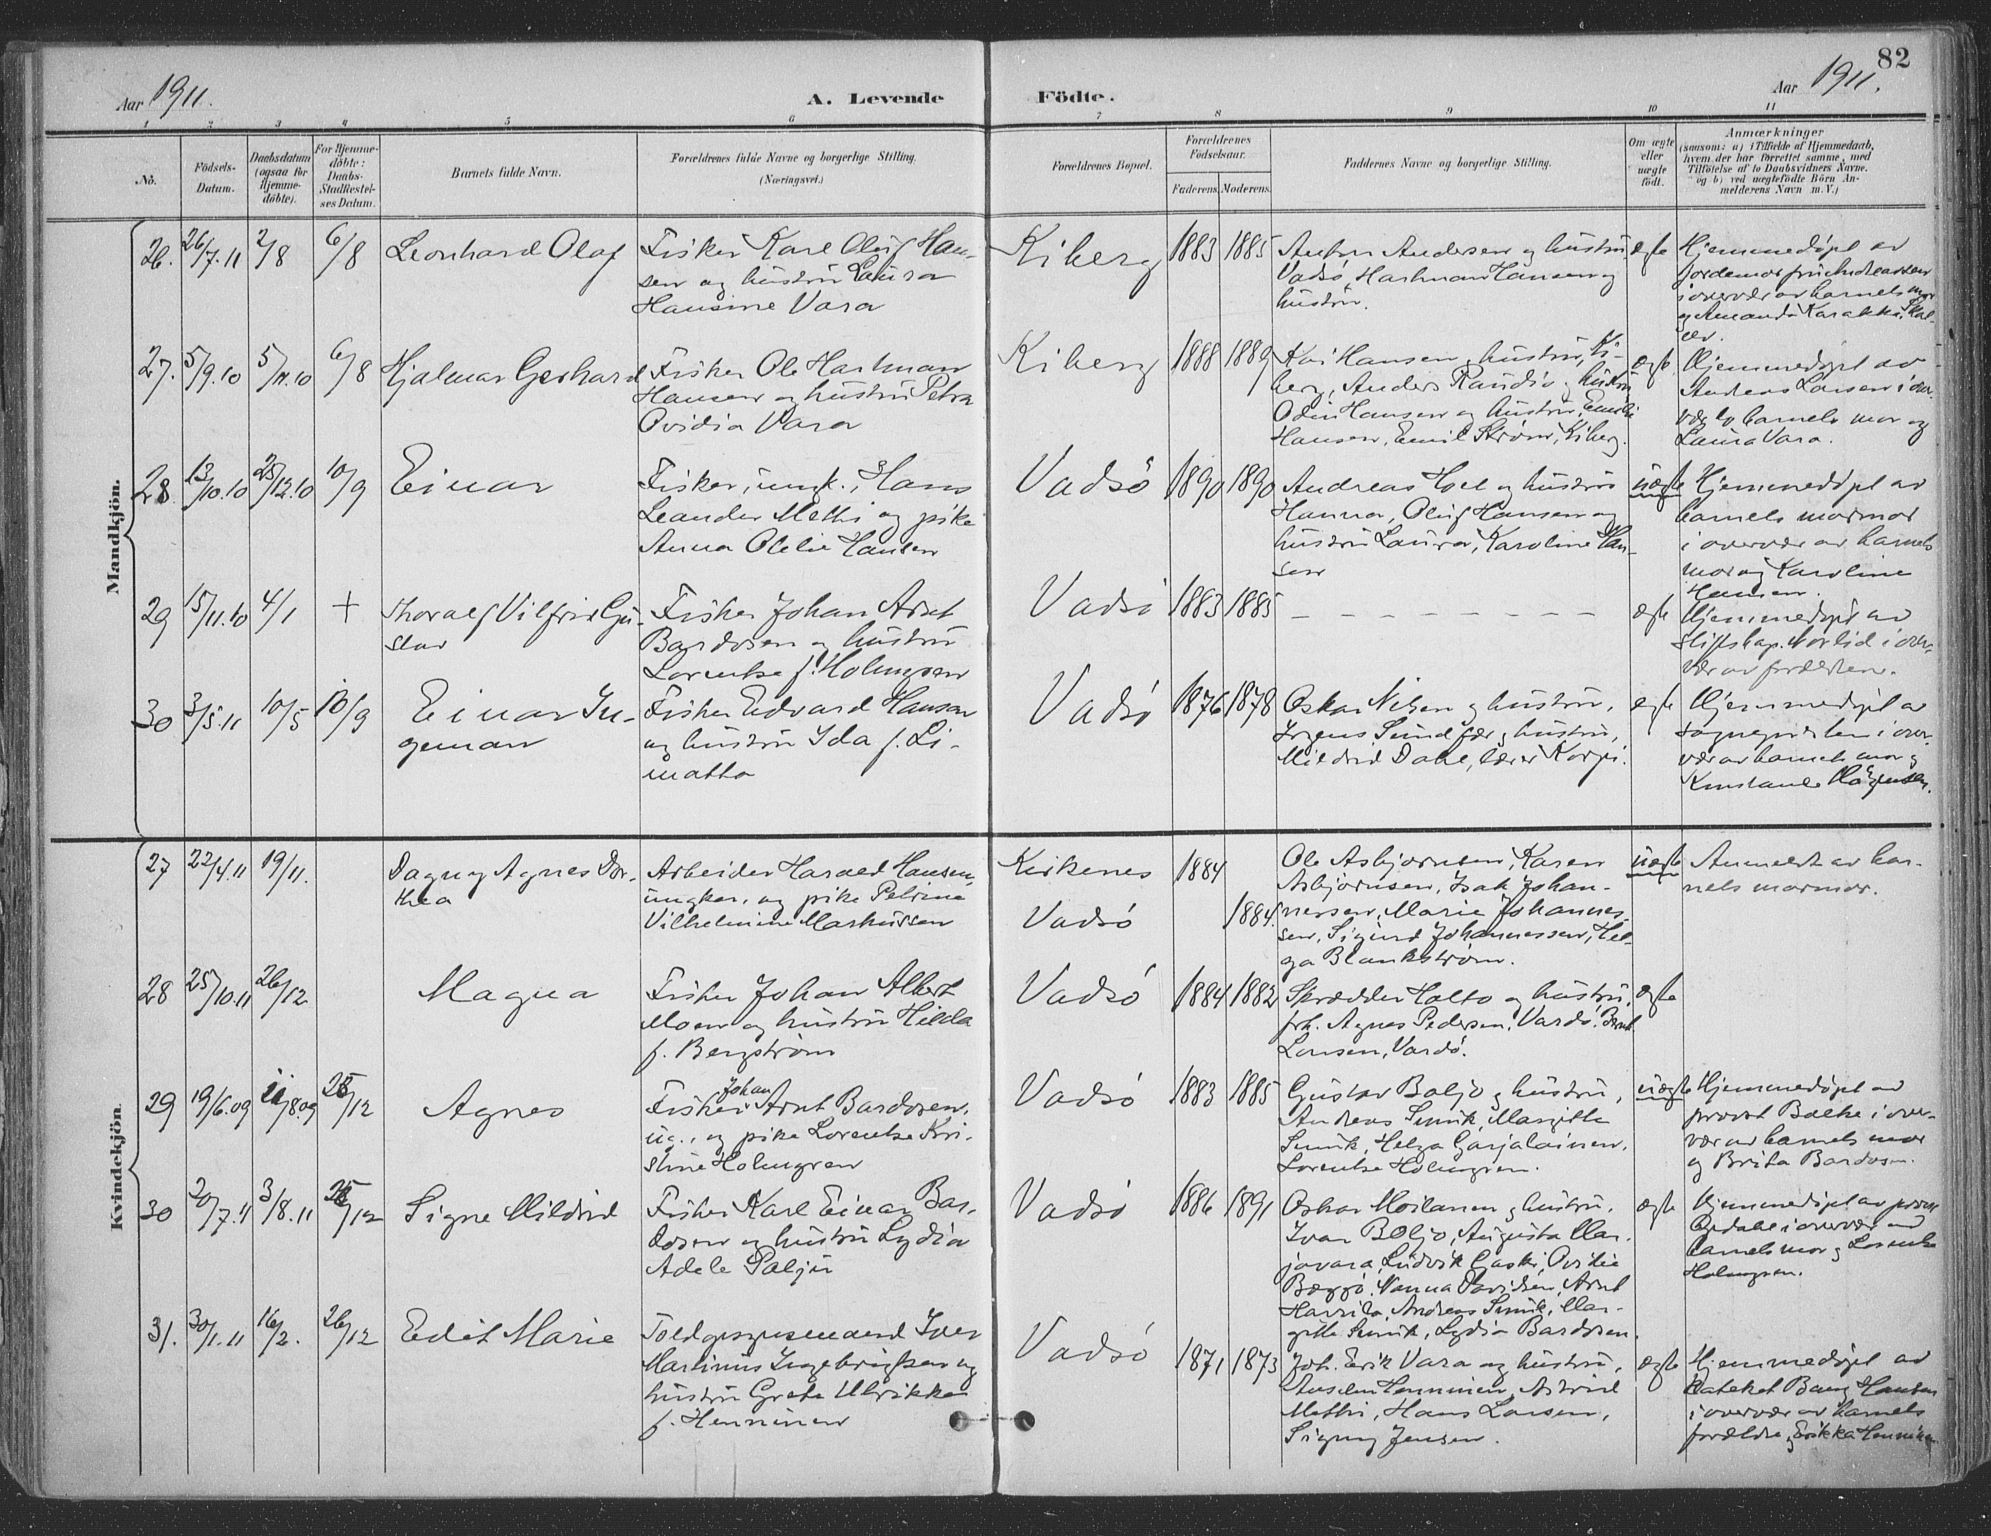 82
Aar 1911.
A. Levende Födte.
Aar 1911.
1 2 3 4 5 6 7 8 9 10 11
No.
Födsels-
Datum.
Daabsdatum
(ogsaa for
Hjemme-
døbte).
For Hjemme-
døbte:
Daabs-
Stadfæstel-
ses Datum.
Barnets fulde Navn.
Forældrenes fulde Navne og borgerlige Stilling.
(Næringsvei.)
Forældrenes Bopæl.
Forældrenes
Födselsaar.
Faderens. Moderens.
Faddernes Navne og borgerlige Stilling.
Om ægte
eller
uægte
født.
Anmærkninger
(saasom: a) i Tilfælde af Hjemmedaab,
hvem der har forrettet samme, med
Tilføielse af to Daabsvidners Navne.
og b) ved uægtefødte Börn An-
melderens Navn m. V.)
Mandkjön.
26. 26/7.11 2/8 6/8 Leonhard Olaf
Fisker Karl Oluf Han-
sen og hustru Laura
Hansine Vara
Kiberg 1883 1885
Anton Andersen og hustru
Vadsö, Hartman Hansen og
hustru.
ægte
Hjemmedöpt av
jordemor fru Andreassen
i overvær av barnets mor
og Amanda
27. 5/9.10 5/11.10 6/8 Hjalmar Gerhard
Fisker Ole Hartman
Hansen og hustru Petra
Ovidia Vara
Kiberg 1888 1889
Hansen og hustru, Ki-
berg, Anders og hustru
Odin Hansen og hustru, Emilie
Hansen, Emil Strøm, Kiberg.
ægte
Hjemmedöpt av
Andreas Larsen i over-
vær av barnets mor og
Laura Vara.
28. 13/10.10 25/12.10 10/9 Einar
Fisker, ungk., Hans
Leander Methi og pike
Anna Olelie Hansen
Vadsö 1890 1890
Andreas Hoel og hustru
Hanna, Oluf Hansen og
hustru Laura, Karoline Han-
sen
uægte
Hjemmedöpt av
barnets mormor
i overvær av barnets
mor og Karoline
Hansen.
29 15/11.10 4/1 + Thoralf Vilfrid Gu-
stav
Fisker Johan Arnt
Bardosen og hustru
Lorentse f. Holmgren
Vadsö 1883 1885
– – – – – – – –
ægte
Hjemmedöpt av
stiftskap. Nortid i over-
vær av forældrene.
30 3/5.11 10/5 10/9 Einar In-
geman
Fisker Edvard Hansen
og hustru Ida f. Li-
matta
Vadsö 1876 1878
Oskar Nilsen og hustru,
Jørgens Sundfær og hustru,
Mildrid Dahl, lærer Korpi.
ægte
Hjemmedöpt av
sognepresten i over-
vær av barnets mor og
Konstanse
Kvindekjön.
27 22/4.11 19/11. Dagny Agnes Dor-
thea
Arbeider Harald Hansen,
ungkar, og pike Petrine
Vilhelmine Markussen
Kirkenes 1884
Vadsö 1884.
Ole Asbjørnsen, Karen
Asbjørnsen, Isak Johan-
nessen, Marie Johannes-
sen, Sigurd Johannessen, Hel-
ga Blankstrøm.
uægte
Anmeldt av bar-
nets mormor.
28 25/10.11 26/12 Magna
Fisker Johan Albert
Moen og hustru Hilda
f. Bergström
Vadsö 1884 1882
Skrædder Holto og hustru,
frk. Agnes Pedersen, Vardö. Bernt
Larsen, Vardö.
ægte
29 19/6.09 11/8.09 25/12 Agnes
Fisker Johan Arnt Bardosen,
ug., og pike Lorentse Kri-
stine Holmgren
Vadsö 1883 1885
Gustav Baljo og hustru,
Andreas Sunik, Margitte
Sunik, Helga Garjalainen,
Lorentse Holmgren.
uægte
Hjemmedöpt av
provst Balke i over-
vær av barnets mor
og Brita Bardosen.
30 20/7.11 3/8.11 25/12 Signe Mildrid
Fisker Karl Einar Bar-
dosen og hustru Lydia
Adele Palju
Vadsö 1886 1891
Oskar Moilanen og hustru,
Ivar Boljo, Augusta Mar-
javara, Ludvik Gaski, Ovidie
Bæggo, Nanna Davidsen, Arnt
Harrila, Andreas Sunik, Mar-
gitte Sunik, Lydia Bardosen.
ægte
Hjemmedöpt av provst
Opdahl i overvær av
barnets mor og Lorentse
Holmgren.
31. 30/1.11 16/2. 26/12 Edit Marie
Toldopsynsmand Iver
Martinus Ingebrigtsen og
hustru Grete Ulrikke
f. Henninen
Vadsö 1871 1873
Joh. Erik Vara og hustru,
Anselm Henninen, Astrid
Methi, Hans Larsen,
Signy Jensen.
ægte
Hjemmedöpt av
kateket Bang Hansen
i overvær av barnets
forældre og Erikka Henninen.